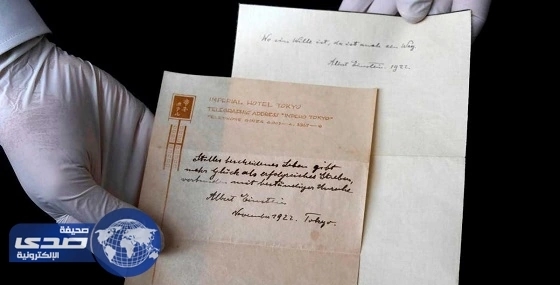 Wo ein Wille ist, da ist auch ein Weg.
Albert Einstein. 1922.
帝国ホテル
IMPERIAL HOTEL TOKYO
TELEGRAPHIC ADDRESS "IMPEHO TOKYO"
TELEPHONE GINZA
Stilles bescheidenes Leben gibt
mehr Glück als erfolgreiches Streben,
verbunden mit beständiger Unruhe.
Albert Einstein
November 1922. Tokyo.
صحيفة
صدى
الإلكترونية